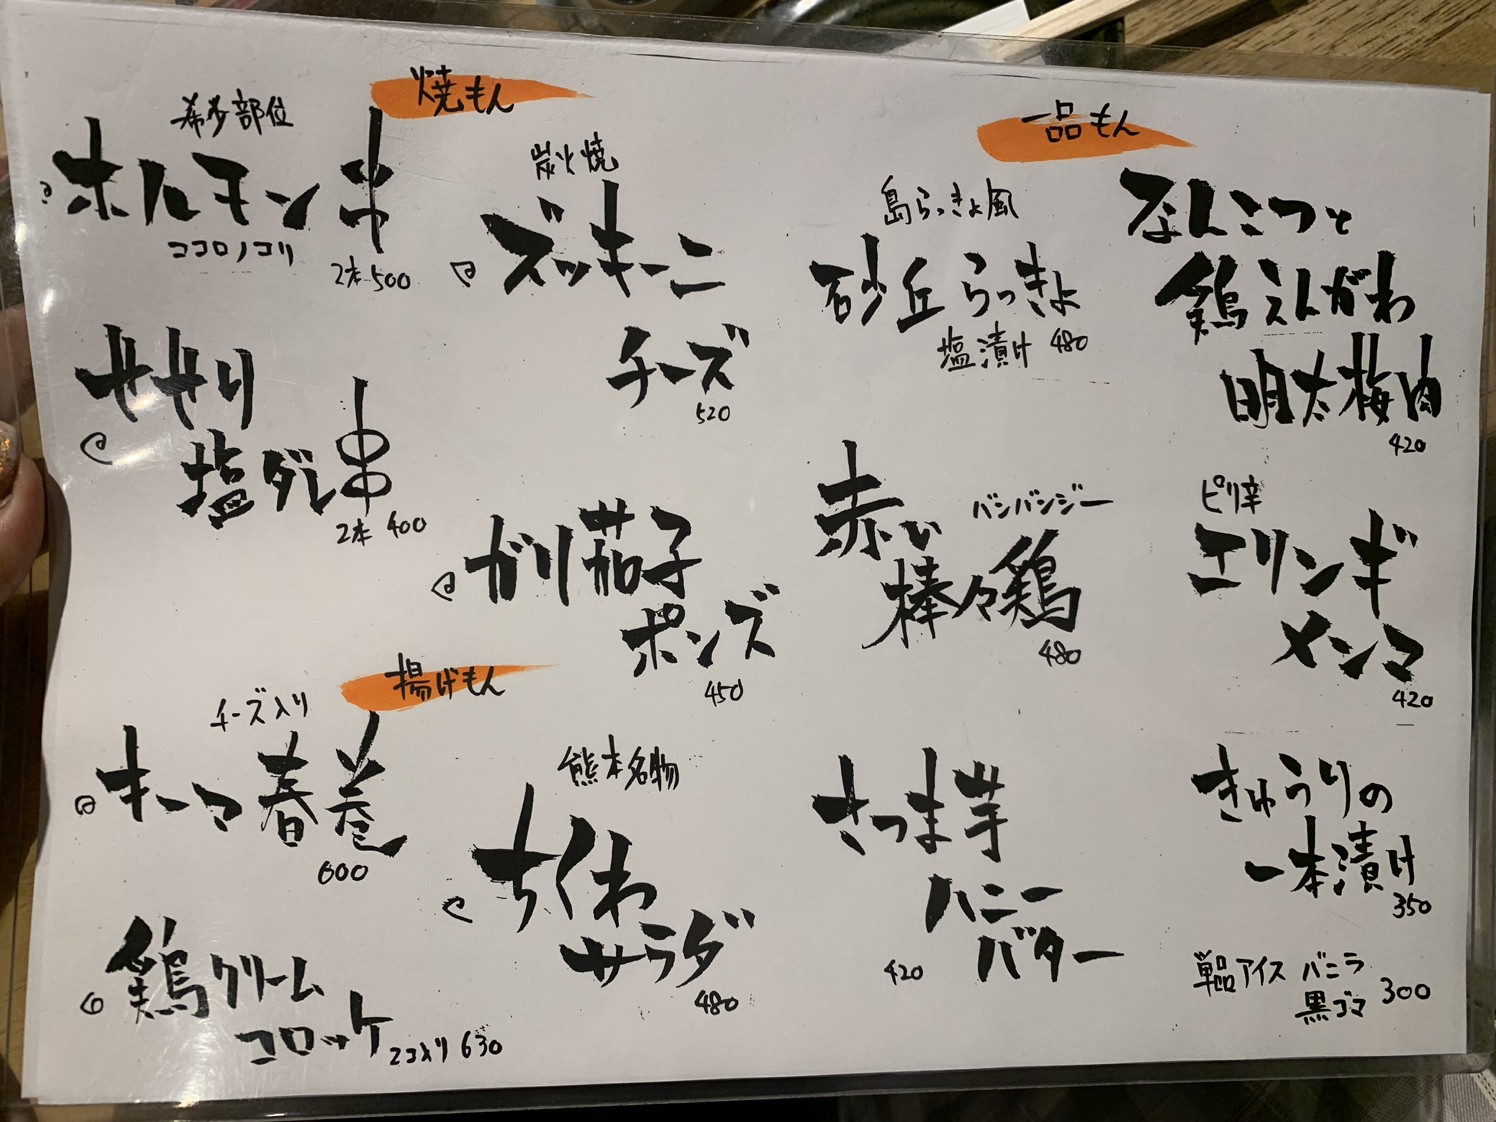 焼もん
希少部位
ホルモン串
ココロノコリ
2本 500
せせり
塩ダレ串
2本 400
炭火焼
ズッキーニ
チーズ
520
ガリ茄子
ポンズ
450
揚げもん
チーズ入り
キーマ春巻
600
鶏クリーム
コロッケ
2コ入り 630
熊本名物
ちくわ
サラダ
480
一品もん
島らっきょ風
砂丘らっきょ
塩漬け 480
赤い
バンバンジー
棒々鶏
480
さつま芋
ハニー
バター
420
なんこつと
鶏えんがわ
明太梅肉
420
ピリ辛
エリンギ
メンマ
420
きゅうりの
一本漬け
350
単品アイス バニラ
黒ゴマ 300